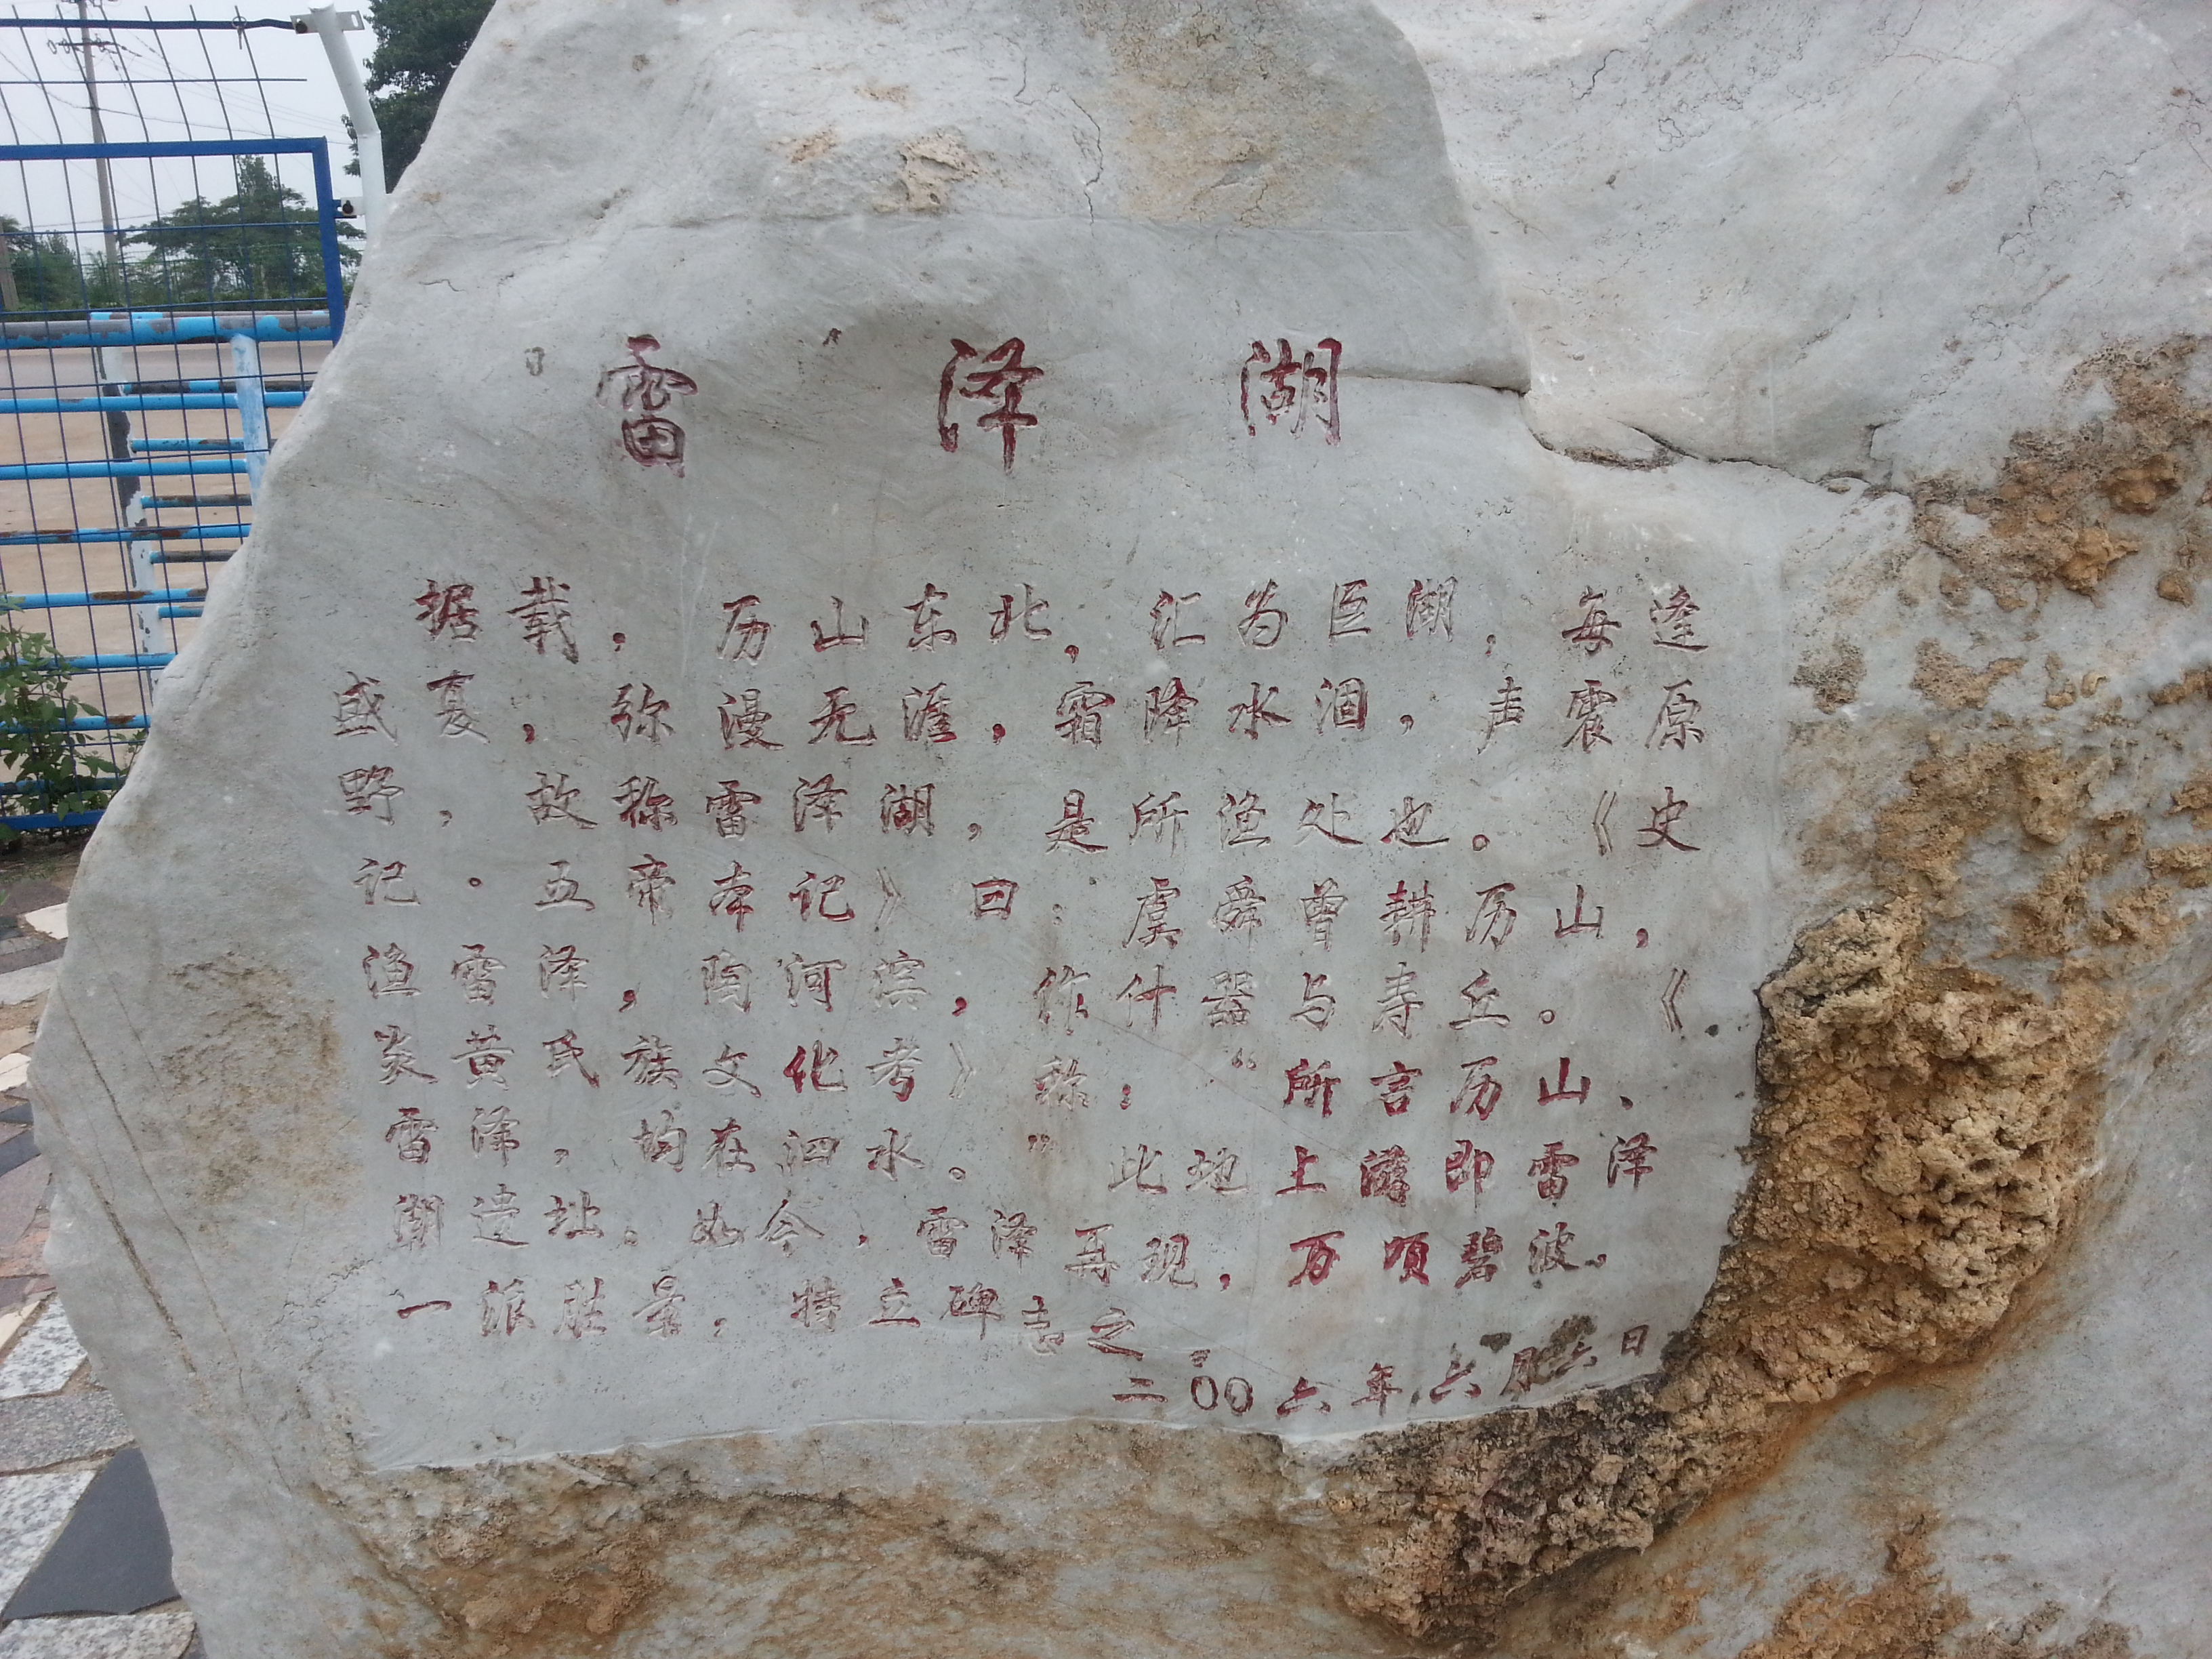 雷泽湖
据载，历山东北，汇为巨湖，每逢
盛夏，弥漫无涯，霜降水涸，声震原
野，故称雷泽湖，是所渔处也。《史
记·五帝本记》曰：虞舜曾耕历山，
渔雷泽，陶河滨，作什器与寿丘。《
炎黄民族文化考》称：“所言历山、
雷泽，均在泗水。”此地上游即雷泽
湖遗址。如今，雷泽再现，万顷碧波。
一派胜景，特立碑志之。
二00六年六月六日